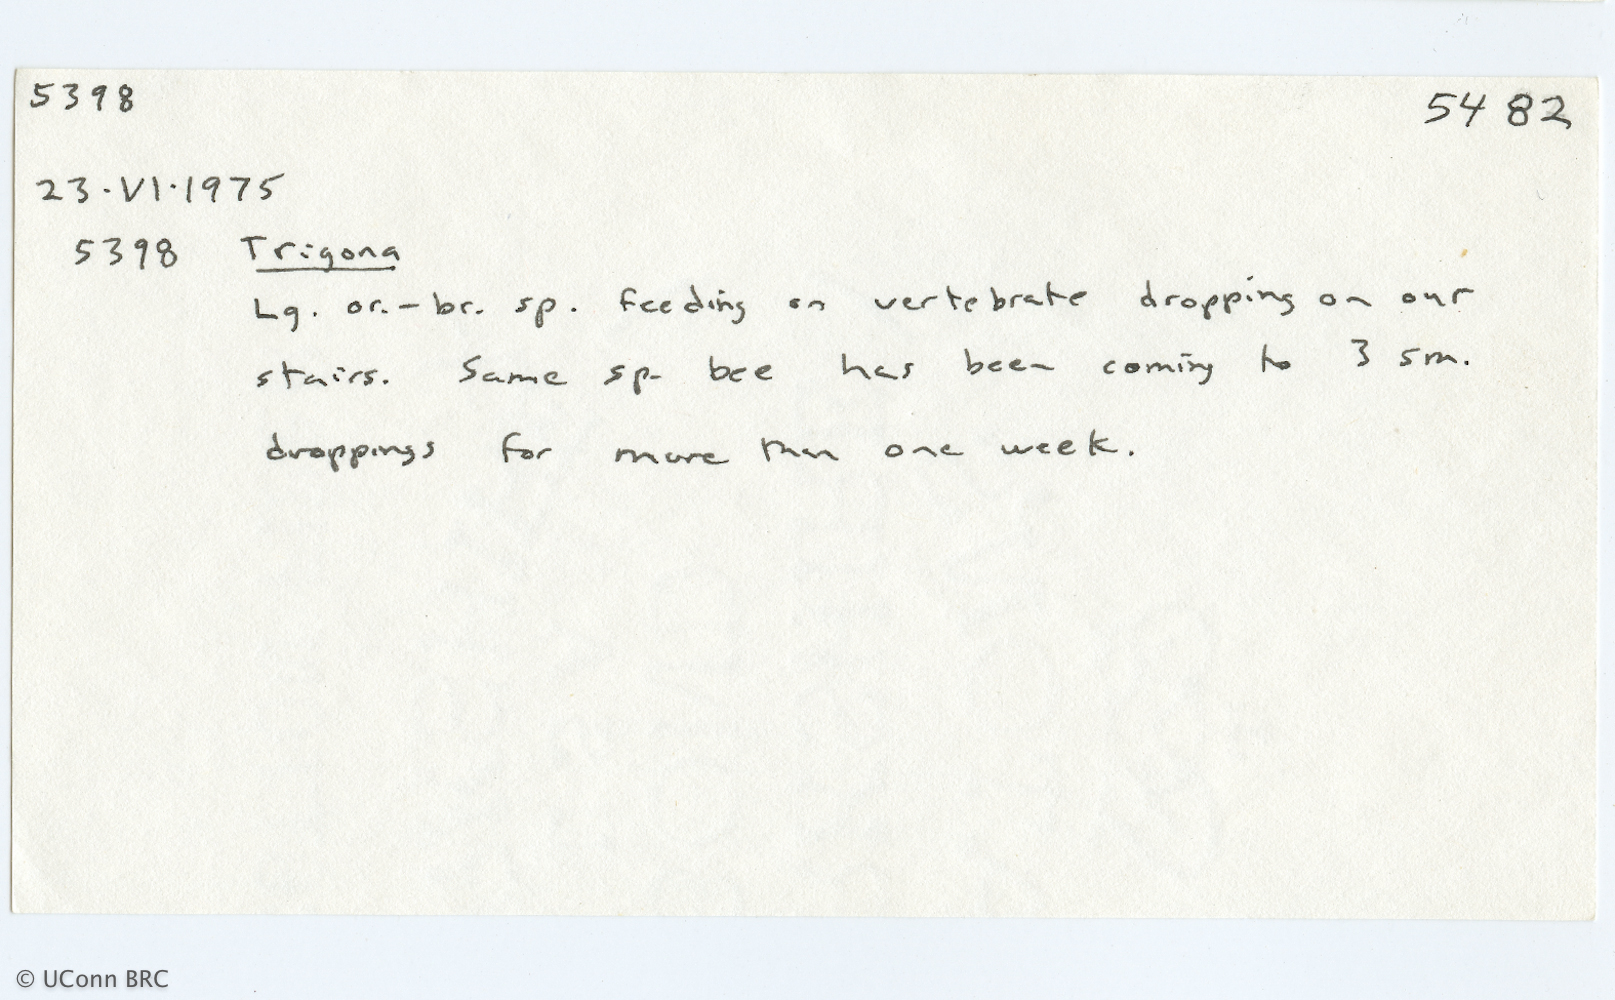 5398 5482
23·VI·1975
5398 Trigona
Lg. or.-br. sp. feeding on vertebrate dropping on our
stairs. Same sp. bee has been coming to 3 sm.
droppings for more than one week.
© UConn BRC